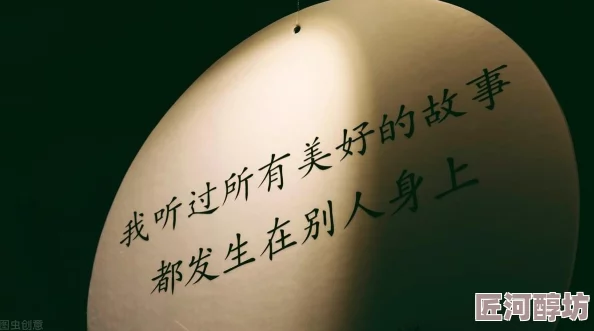 我听过所有美好的故事
都发生在别人身上
图虫创意
匠河醇坊